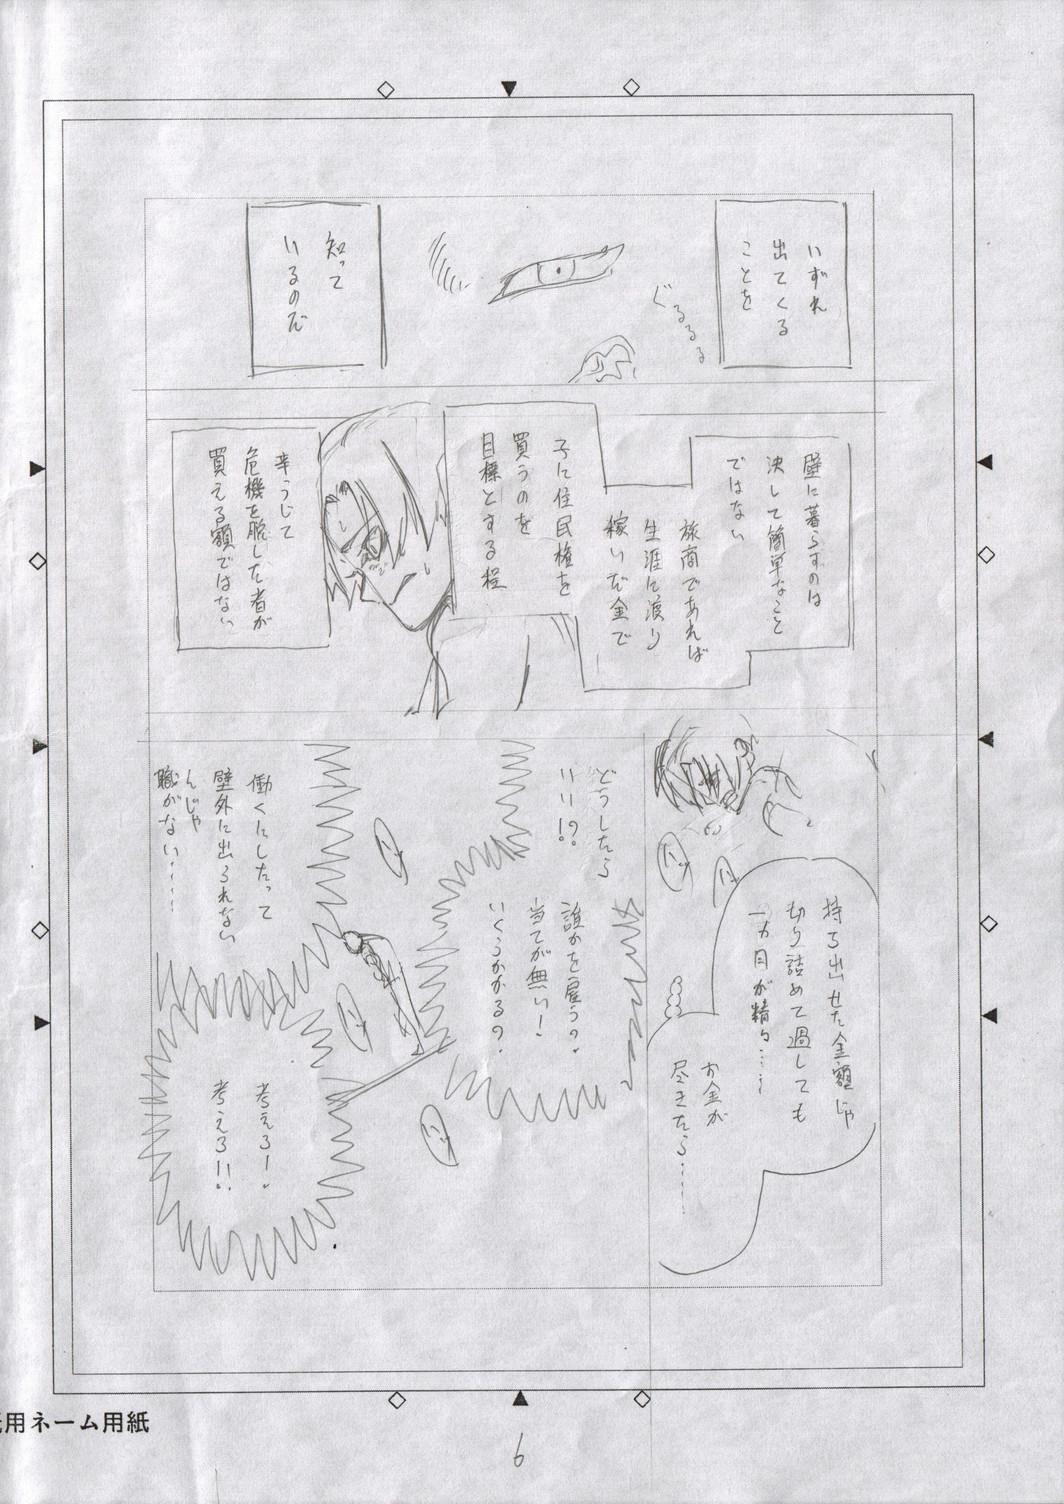 いずれ
出てくる
ことを
ぐるるる
知って
いるのだ
壁に暮らすのは
決して簡単なこと
ではない
旅商であれば
生涯に渡り
稼いだ金で
子に住民権を
買うのを
目標とする程
辛うじて
危機を脱した者が
買える額ではない
持ち出せた金額じゃ
切り詰めて過しても
一カ月が精々……
お金が
尽きたら……
どうしたら
いい!?
誰かを雇うの。
当てが無い!
いくらかかるの.
働くにしたって
壁外に出られない
んじゃ
職がない……
考えろ!
考えろ!!
用ネーム用紙
6